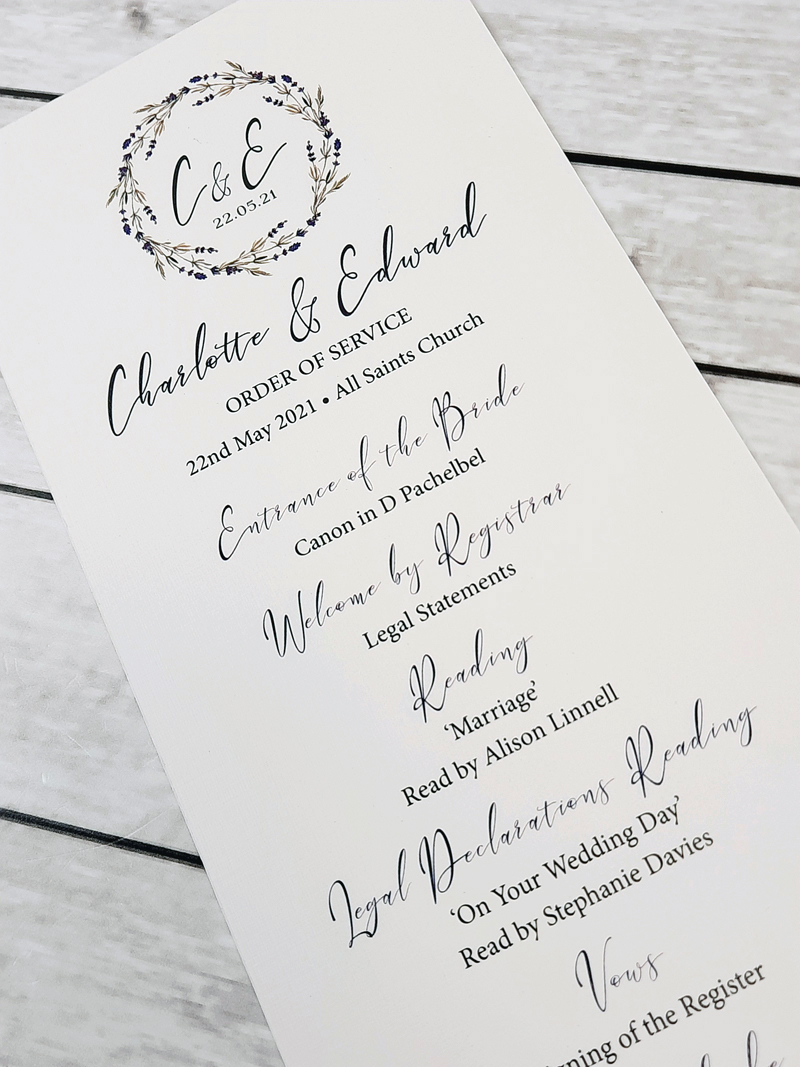 C & E
22.05.21
Charlotte & Edward
ORDER OF SERVICE
22nd May 2021 • All Saints Church
Entrance of the Bride
Canon in D Pachelbel
Welcome by Registrar
Legal Statements
Reading
‘Marriage’
Read by Alison Linnell
Legal Declarations Reading
‘On Your Wedding Day’
Read by Stephanie Davies
Vows
of the Register